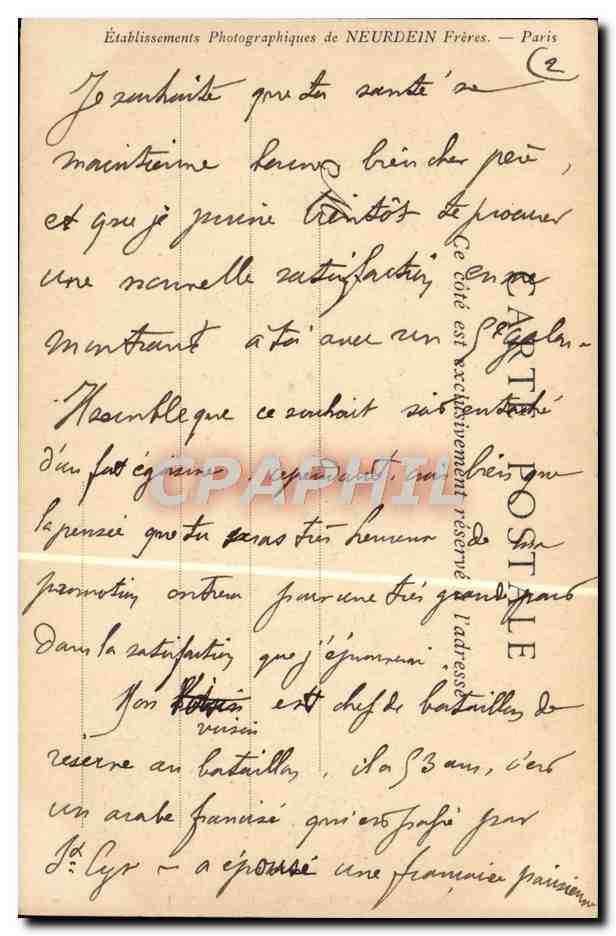 Établissements Photographiques de NEURDEIN Frères. — Paris
2
Je souhaite que ta santé se
maintienne bien cher père,
et que je puisse bientôt te procurer
une nouvelle satisfaction en me
montrant à toi avec un 5e galon.
Il semble que ce souhait soit entaché
d'un fort égoïsme, cependant, crois bien que
la pensée que tu seras très heureux de ma
promotion entrera pour une très grande part
dans la satisfaction que j'éprouverai.
Mon voisin est chef de bataillon de
réserve au bataillon, il a 53 ans, c'est
un arabe francisé qui est passé par
St Cyr — a épousé une française parisienne
CARTE POSTALE
Ce côté est exclusivement réservé à l'adresse
CPAPHIL